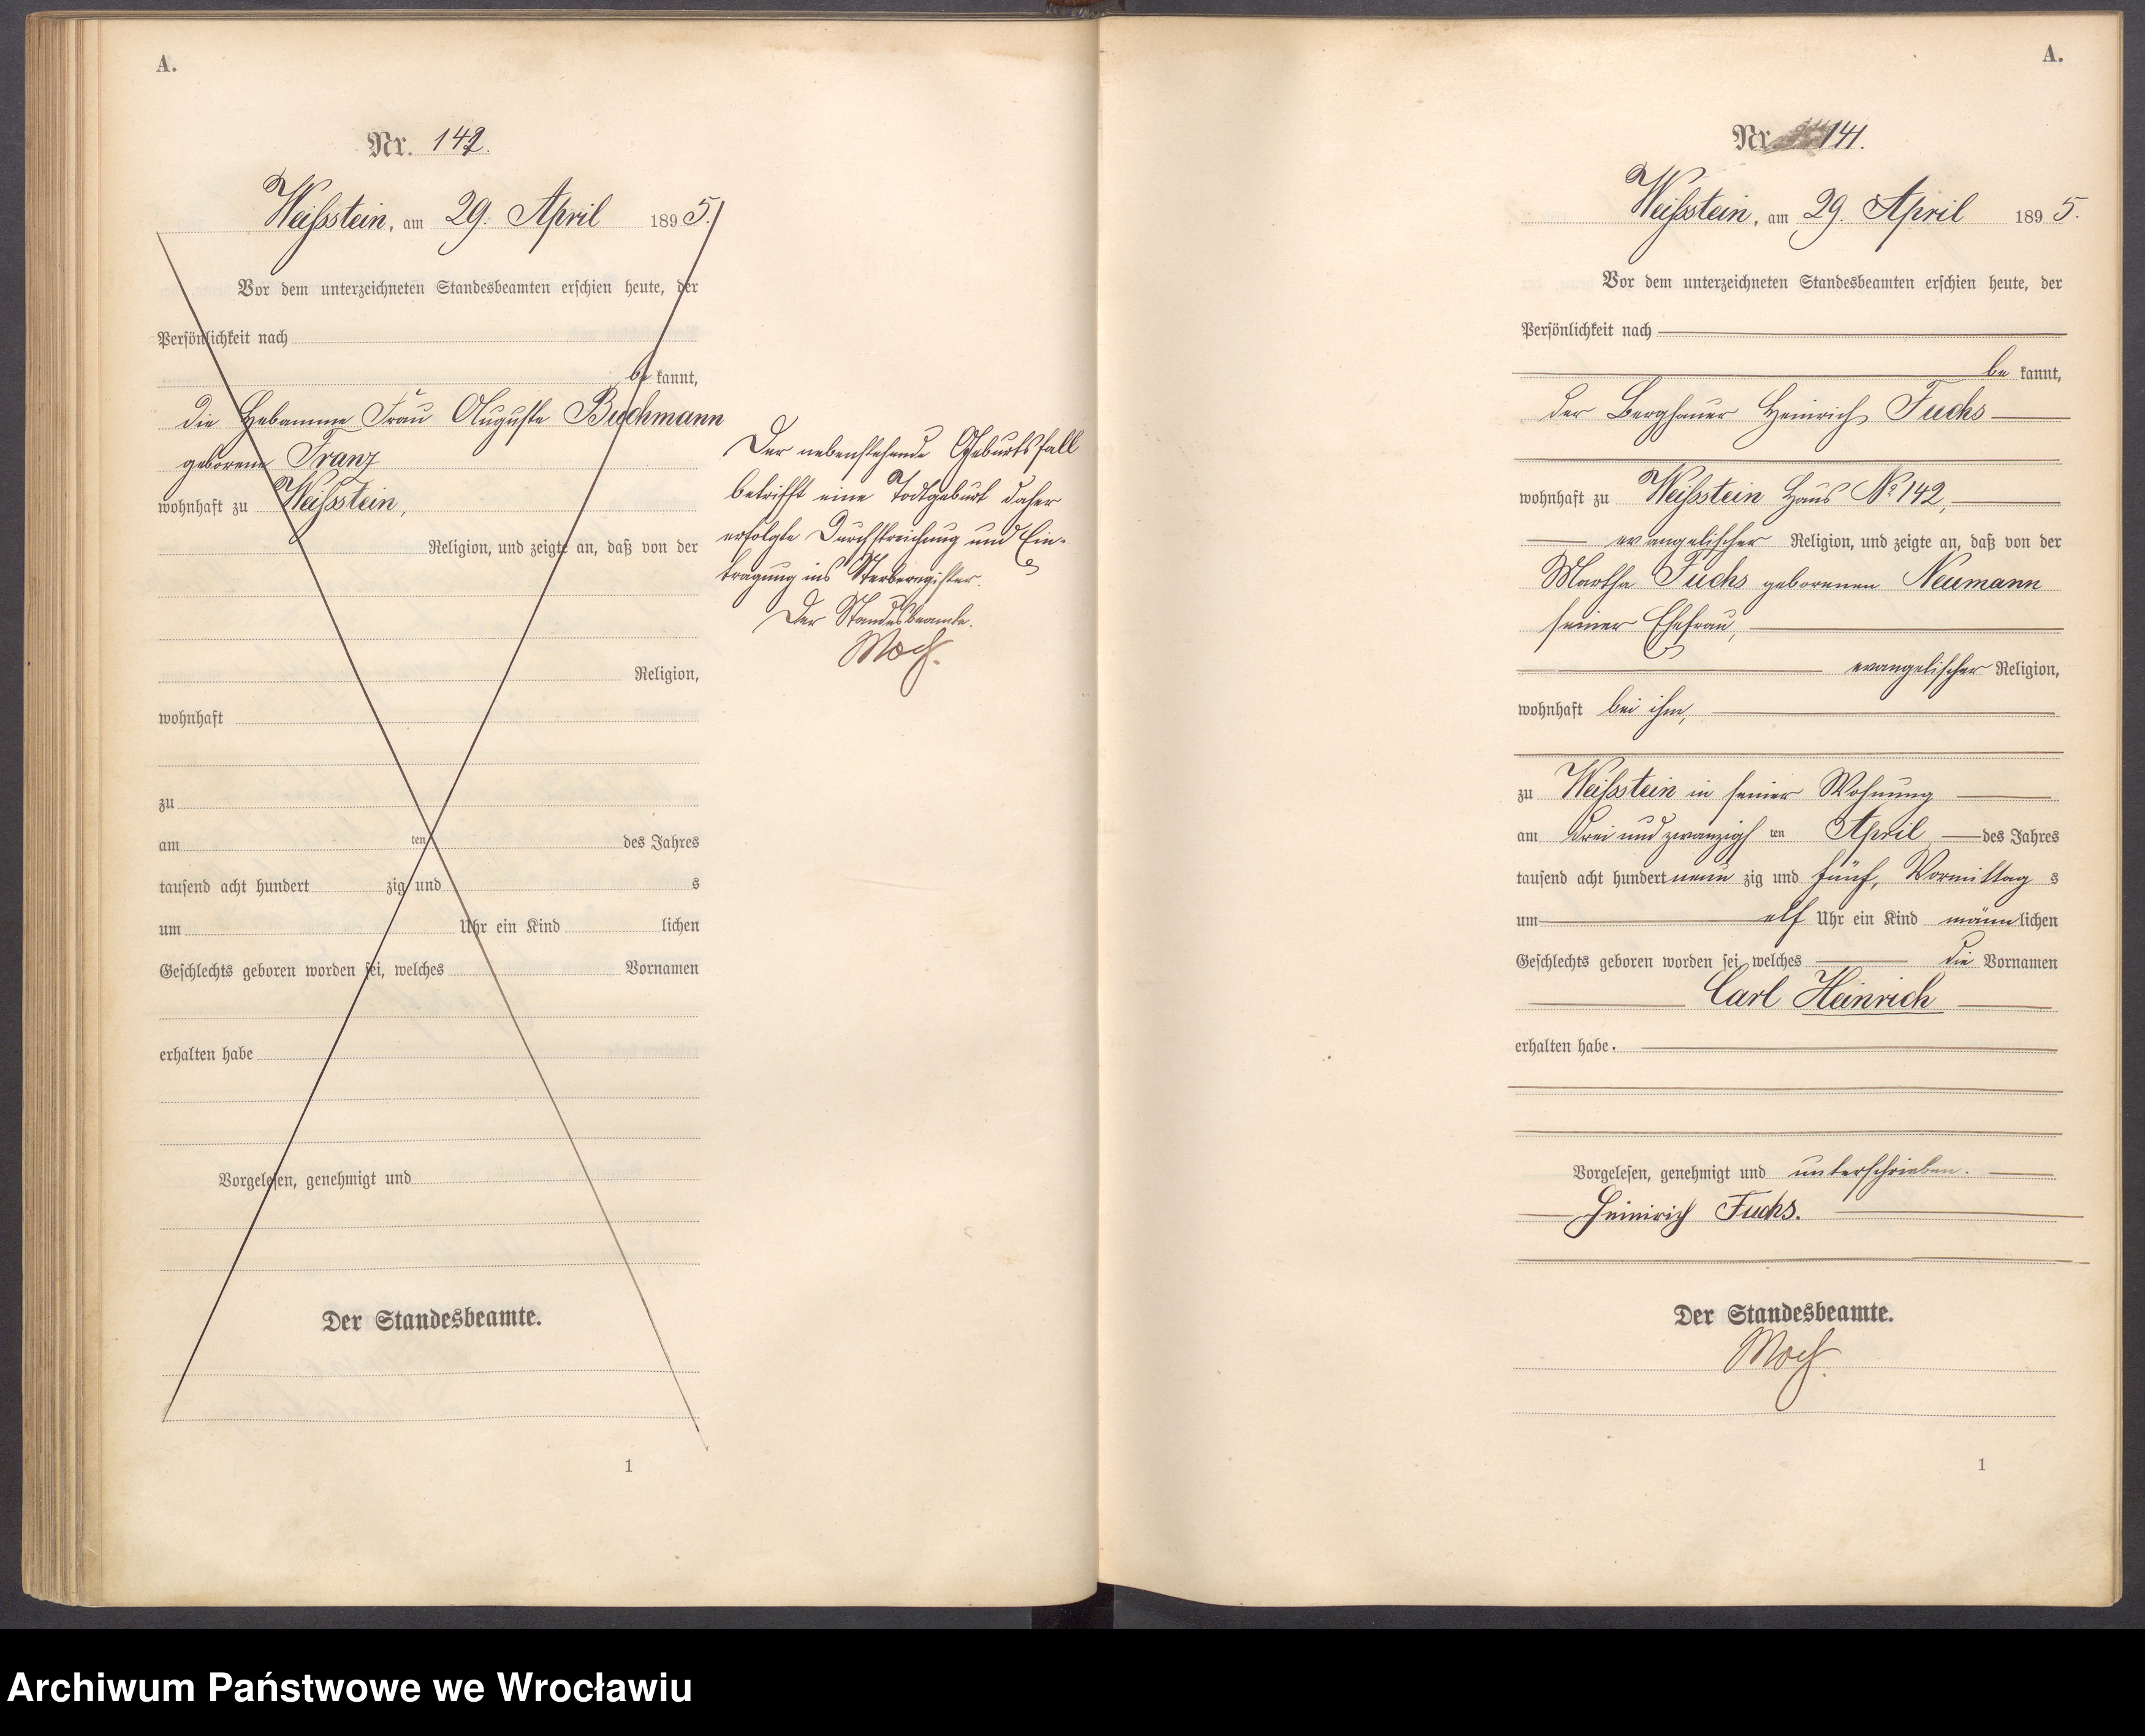 A.
Nr. 142.
Weißstein, am 29. April 1895.
Vor dem unterzeichneten Standesbeamten erschien heute, der
Persönlichkeit nach
be kannt,
die Hebamme Frau Auguste Buchmann
geborene Franz
wohnhaft zu Weißstein,
Religion, und zeigte an, daß von der
Religion,
wohnhaft
zu
am ten des Jahres
tausend acht hundert zig und s
um Uhr ein Kind lichen
Geschlechts geboren worden sei, welches Vornamen
erhalten habe
Vorgelesen, genehmigt und
Der Standesbeamte.
1
Der nebenstehende Geburtsfall
betrifft eine Todtgeburt daher
erfolgte Durchstreichung und Ein-
tragung ins Sterberegister.
Der Standesbeamte.
A.
Nr. 141.
Weißstein, am 29. April 1895.
Vor dem unterzeichneten Standesbeamten erschien heute, der
Persönlichkeit nach
be kannt,
der Berghauer Heinrich Fuchs
wohnhaft zu Weißstein Haus No 142,
evangelischer Religion, und zeigte an, daß von der
Martha Fuchs geborenen Neumann
seiner Ehefrau,
evangelischer Religion,
wohnhaft bei ihm,
zu Weißstein in seiner Wohnung
am drei und zwanzigsten April des Jahres
tausend acht hundert neun zig und fünf, Vormittag s
um elf Uhr ein Kind männlichen
Geschlechts geboren worden sei, welches die Vornamen
Carl Heinrich
erhalten habe.
Vorgelesen, genehmigt und unterschrieben.
Heinrich Fuchs.
Der Standesbeamte.
1
Archiwum Państwowe we Wrocławiu